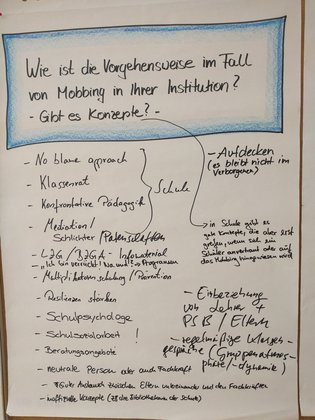 Wie ist die Vorgehensweise im Fall
von Mobbing in Ihrer Institution?
- Gibt es Konzepte? -
- No blame aproach
- Klassenrat
- Konfrontative Pädagogik
- Mediation/
Schlichter/Patenschaften
Schule
- LZG / BZGA - Infomaterial
- "Ich bin verrückt! Na und?" → Programm
- Multiplikatorenschulung / Prävention
- Resilienzen stärken
- Schulpsychologe
- Schulsozialarbeit !
- Beratungsangebote
- neutrale Person oder auch Fachkraft
- guter Austausch zwischen Eltern untereinander und den Fachkräften
- inoffizielle Konzepte (z.B. die Bibliothek der Schule)
- Aufdecken
(es bleibt nicht im
verborgenen)
in Schule gibt es
gute Konzepte, die aber erst
greifen, wenn sich ein
Schüler anvertraut oder auf
das Mobbing hingewiesen wird
- Einbeziehung
von Lehrer +
PSB / Eltern
- regelmäßige Klassen-
gespräche (Gruppenatmos-
phäre/-dynamik)